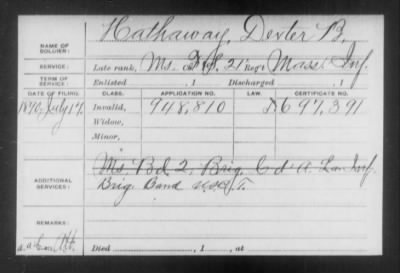 NAME OF SOLDIER: Hathaway, Dexter B.
SERVICE: Late rank, Ms. Co. , 21" Reg't Mass Inf.
TERM OF SERVICE: Enlisted , 1 Discharged , 1
DATE OF FILING. CLASS. APPLICATION NO. LAW. CERTIFICATE NO.
1890, July 17. Invalid, 948,810 697,391
Widow,
Minor,
ADDITIONAL SERVICES: Ms. Bd. 2, Brig. Inf.
Brig. Band
REMARKS:
Died , 1 , at